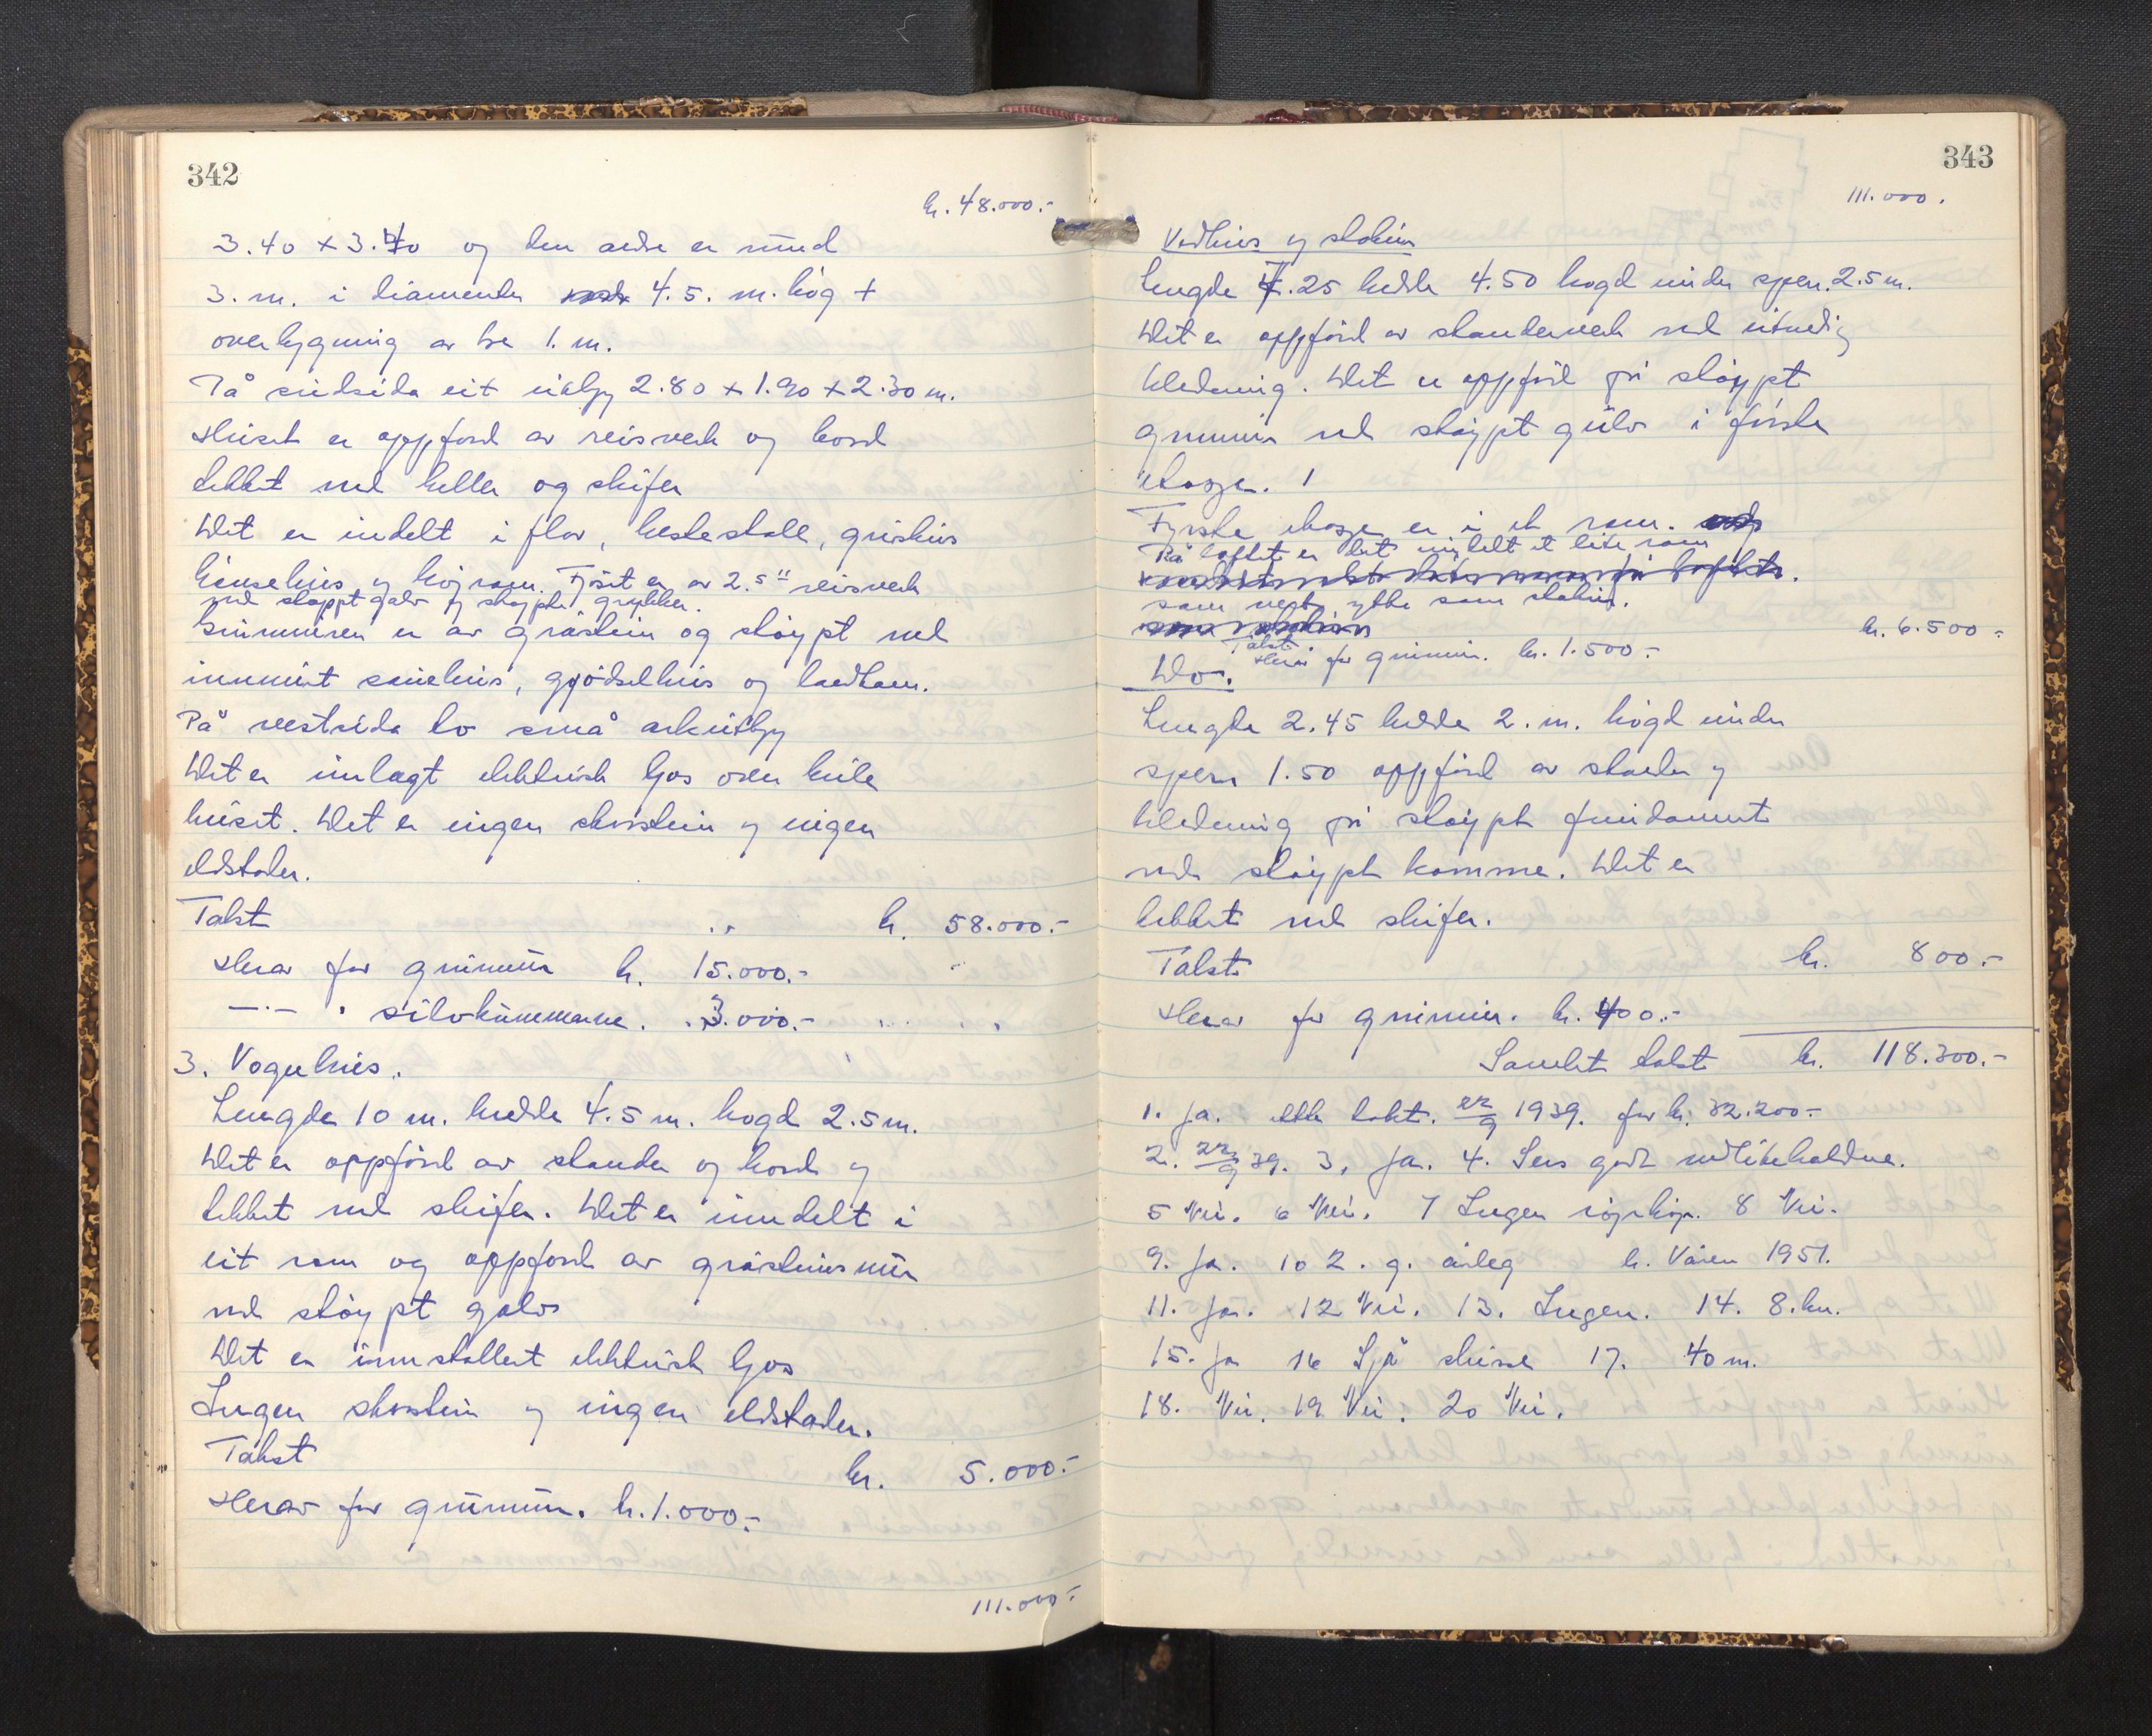 342
kr. 48.000.-
3.40 x 3.40 og den andre er rund
3. m. i diameter 4.5. m. høg +
overbygning av tre 1. m.
På sudsida eit utbygg 2.80 x 1.90 x 2.30 m.
Huset er oppført av reisverk og bord
tekket med heller og skifer
Det er indelt i flor, hestestall, grishus
hønsehus og høyrom. Fjøset er av 2.5" reisverk
med støypt golv og støypte grypper.
Grunnmuren er av gråstein og støypt med
innmurt sauehus, gjødselhus og landkum.
På vestsida to små arkutbygg
Det er innlagt elektrisk ljos over heile
huset. Det er ingen skorstein og ingen
eldstader.
Takst kr. 58.000.-
Herav for grunnmur kr. 15.000.-
—"— " silokummarne. " 3.000.-
3. Vognhus.
Lengde 10 m. bredde 4.5 m. høgd 2.5 m.
Det er oppført av stender og bord og
tekket med skifer. Det er inndelt i
eit rom og oppført av gråsteinsmur
med støypt golv
Det er innstallert elektrisk ljos
Ingen skorstein og ingen eldstader.
Takst kr. 5.000.-
Herav for grunnmur. kr. 1.000.-
111.000.-
343
111.000.
Vedhus og stabur
Lengde 7.25 bredde 4.50 høgd under sperr. 2.5 m.
Det er oppført av standerverk med utvendig
kledning. Det er oppført på støypt
grunnmur med støypt gulv i første
etasje.
Fyrste etasje er i et rom.
På loftet er det inndelt et lite rom
som vert nytta som stabur.
kr. 6.500.-
Takst
Herav for grunnmur. kr. 1.500.-
Do.
Lengde 2.45 bredde 2. m. høgd under
sperr 1.50 oppført av stender og
kledning på støypt fundament
med støypt komme. Det er
tekket med skifer.
Takst kr. 800.-
Herav for grunnmur. kr. 400.-
Samlet takst kr. 118.300.-
1. Ja. etter takst. 22/9 1939. for kr. 32.200.-
2. 22/9 39. 3. Ja. 4. Sers godt vedlikeholdne.
5 Nei. 6 Nei. 7 Ingen 8 Nei.
9. Ja. 10 2. g. årleg Våren 1951.
11. Ja. 12 Nei. 13. Ingen. 14. 8. km.
15. Ja 16 Sjå skisse 17. 40 m.
18. Nei. 19 Nei. 20 Nei.